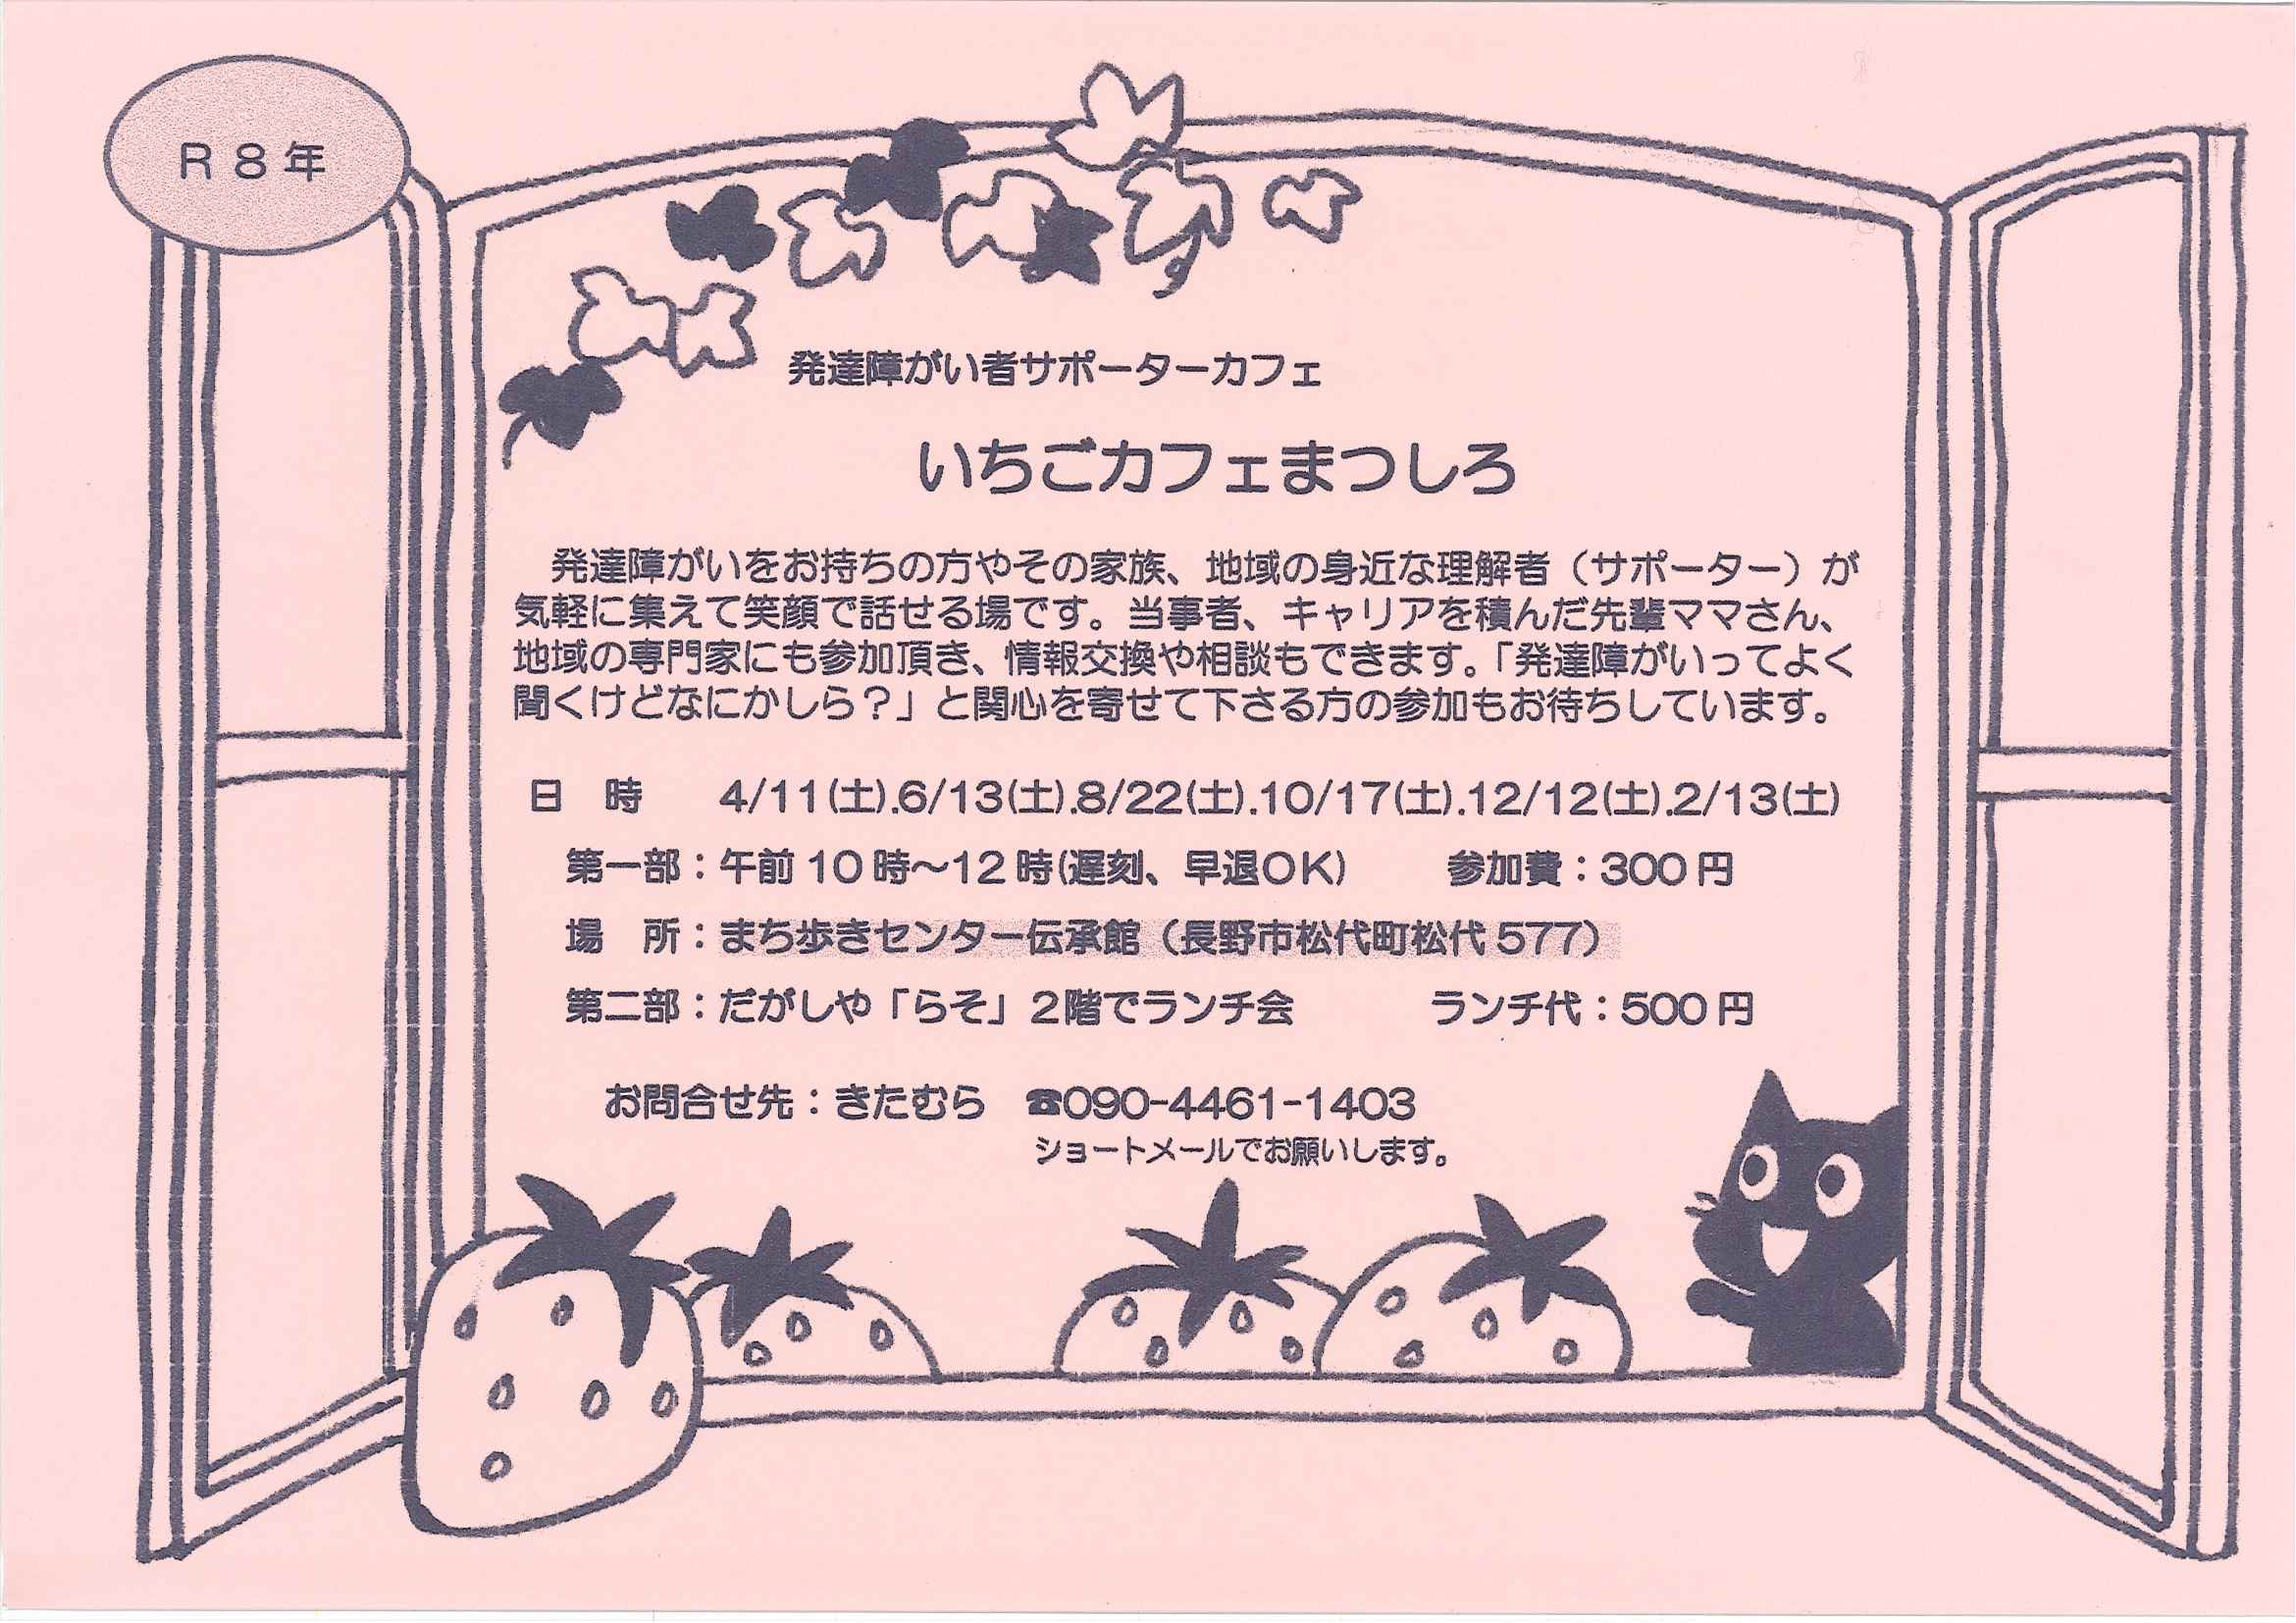 R8年
発達障がい者サポーターカフェ
いちごカフェまつしろ
発達障がいをお持ちの方やその家族、地域の身近な理解者（サポーター）が
気軽に集えて笑顔で話せる場です。当事者、キャリアを積んだ先輩ママさん、
地域の専門家にも参加頂き、情報交換や相談もできます。「発達障がいってよく
聞くけどなにかしら？」と関心を寄せて下さる方の参加もお待ちしています。
日　時　4/11(土).6/13(土).8/22(土).10/17(土).12/12(土).2/13(土)
第一部：午前10時～12時(遅刻、早退OK)　参加費：300円
場　所：まち歩きセンター伝承館（長野市松代町松代577）
第二部：だがしや「らそ」2階でランチ会　ランチ代：500円
お問合せ先：きたむら　☎090-4461-1403
ショートメールでお願いします。